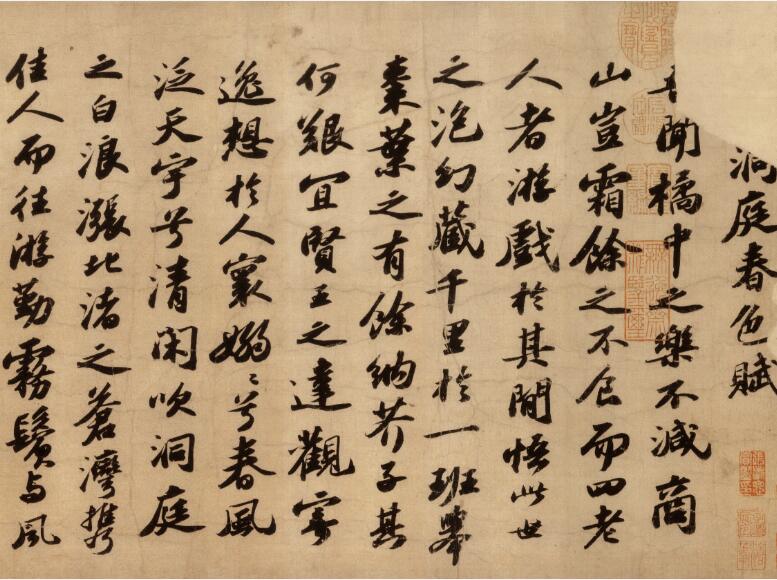 洞庭春色賦
吾聞橘中之樂不減商
山豈霜餘之不食而四老
人者游戲於其間悟此世
之泡幻藏千里於一班舉
棗葉之有餘納芥子其
何艱宜賢王之達觀寄
逸想於人寰嫋〻兮春風
泛天宇兮清閑吹洞庭
之白浪漲北渚之蒼灣攜
佳人而往游勤霧鬢与風